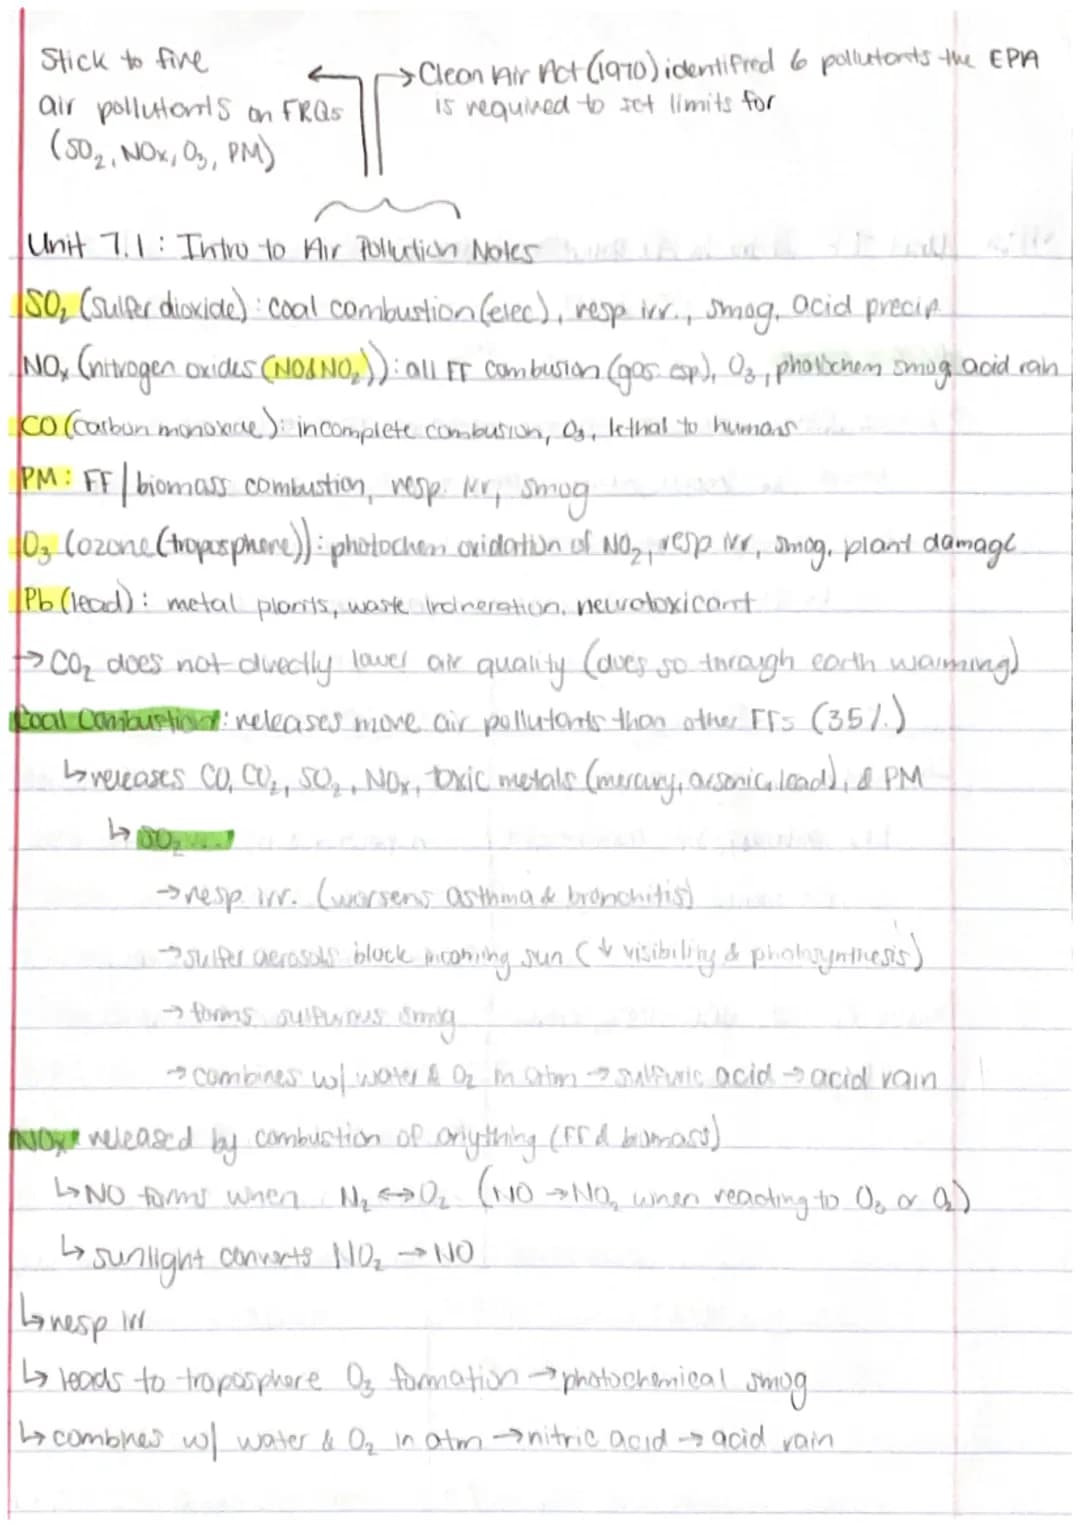 Stick to five
air pollutants on FRQs
(SO2, NOx, O3, PM)
→ Clean Air Act (1970) identified 6 pollutants the EPA
is required to set limits for
Unit 7.1: Intro to Air Pollution Notes
SO2 (sulfer dioxide): coal combustion (elec), resp irr., smog, acid precip
NOx (nitrogen oxides (NO & NO2)): all FF combusion (gas esp), O3, photochem smog acid rain
CO (carbon monoxide): incomplete combusion, O3, lethal to humans
PM: FF/biomass combustion, resp. irr, smog
O3 (ozone (troposphere)): photochem oxidation of NO2, resp irr, smog, plant damage
Pb (lead): metal plants, waste incineration, neurotoxicant
→ CO2 does not directly lower air quality (does so through earth warming)
Coal Combustion: releases more air pollutants than other FFs (35%)
↳ releases CO, CO2, SO2, NOx, toxic metals (mercury, arsenic, lead), & PM
↳ SO2
→ resp. irr. (worsens asthma & bronchitis)
→ sulfer aerosols block incoming sun (↓ visibility & photosynthesis)
→ forms sulfurous smog
→ combines w/ water & O2 in atm → sulfuric acid → acid rain
NOx: released by combustion of anything (FF & biomass)
↳ NO forms when N2 ↔ O2 (NO → NO2 when reacting to O3 or O2)
↳ sunlight converts NO2 → NO
↳ resp irr
↳ leads to troposphere O3 formation → photochemical smog
↳ combines w/ water & O2 in atm → nitric acid → acid rain